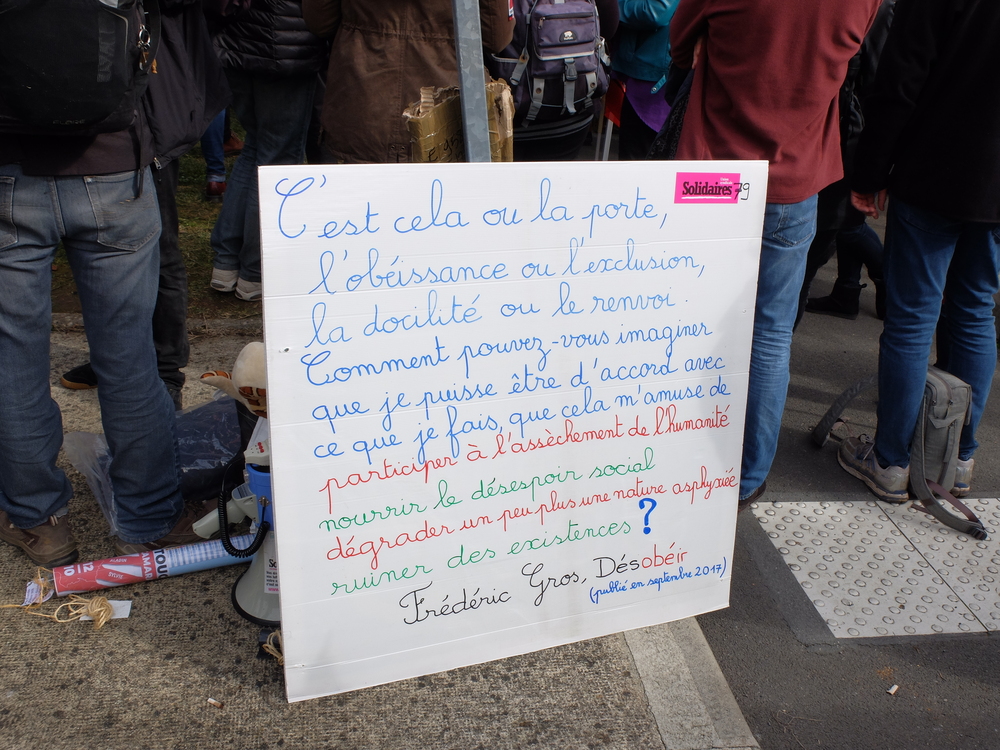 C'est cela ou la porte,
Solidaires 79
l'obéissance ou l'exclusion,
la docilité ou le renvoi.
Comment pouvez-vous imaginer
que je puisse être d'accord avec
ce que je fais, que cela m'amuse de
participer à l'assèchement de l'humanité
nourrir le désespoir social
dégrader un peu plus une nature asphyxiée
ruiner des existences ?
Frédéric Gros, Désobéir
(publié en septembre 2017)